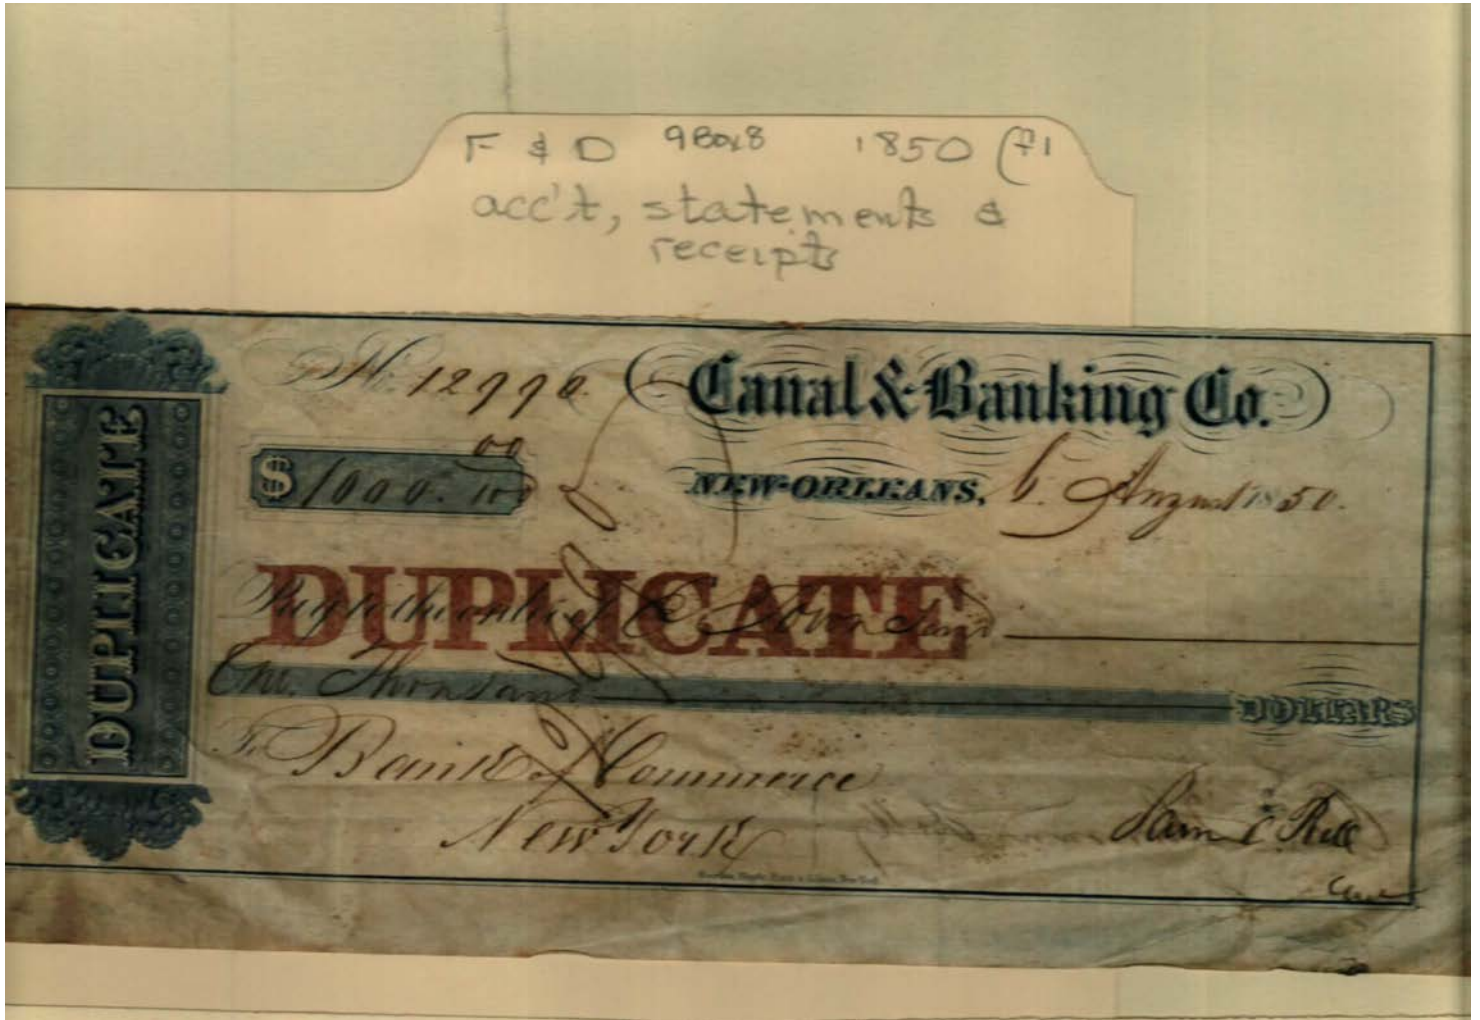 F & D 9Box8 1850 (f1
acc't, statements &
receipts
DUPLICATE
No. 12990. Canal & Banking Co.
$ 1000. 00/100 NEW-ORLEANS, 6. August 1850.
DUPLICATE
Pay to the order of
One Thousand DOLLARS
To Bank of Commerce
New York
Sam